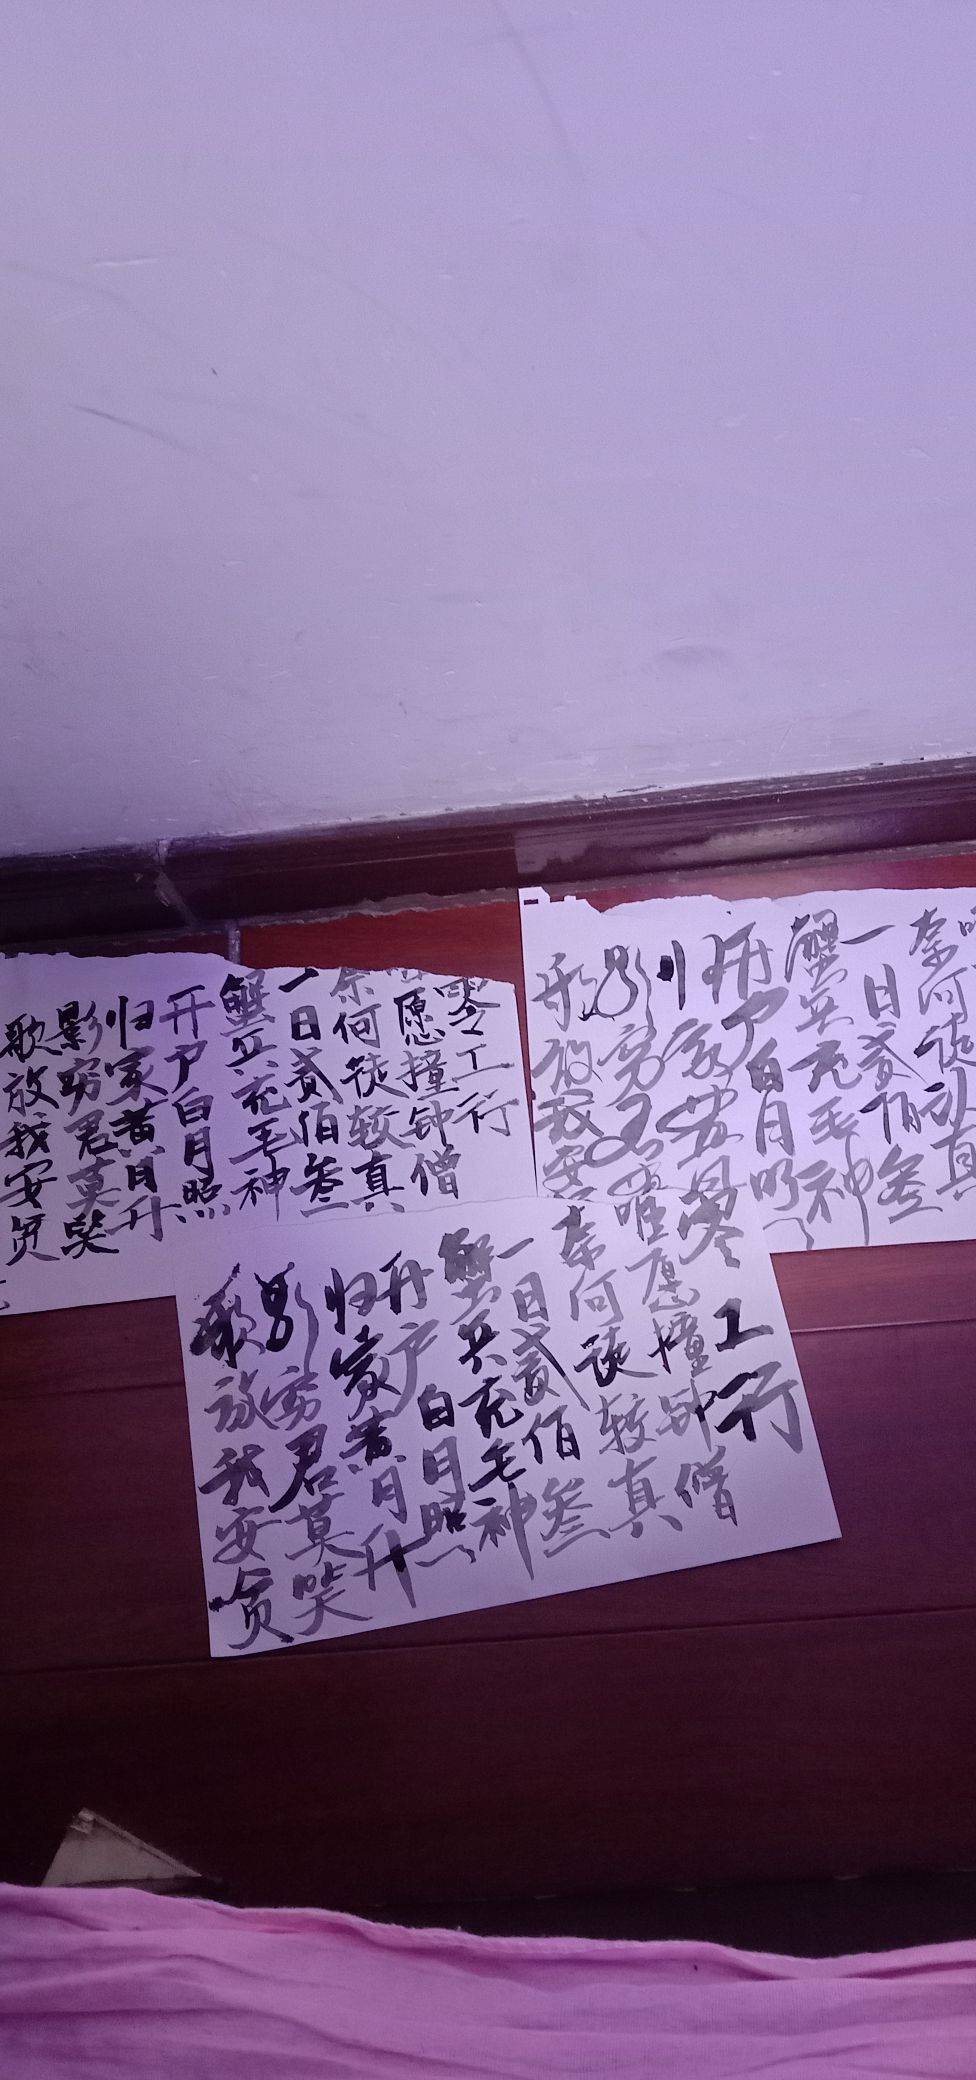 零工行
愿撞钟僧
奈何徒较真
一日贰佰叁
蟹兵充毛神
开户白月照
归家黄月升
影穷君莫笑
歌放我安贫
奈何徒真
一日贰佰叁
蟹兵充毛神
开户白月照
归家黄
影穷君
歌放我安
零工行
唯愿撞钟僧
奈何徒较真
一日贰佰叁
蟹兵充毛神
开户白月照
归家黄月升
影穷君莫笑
歌放我安贫